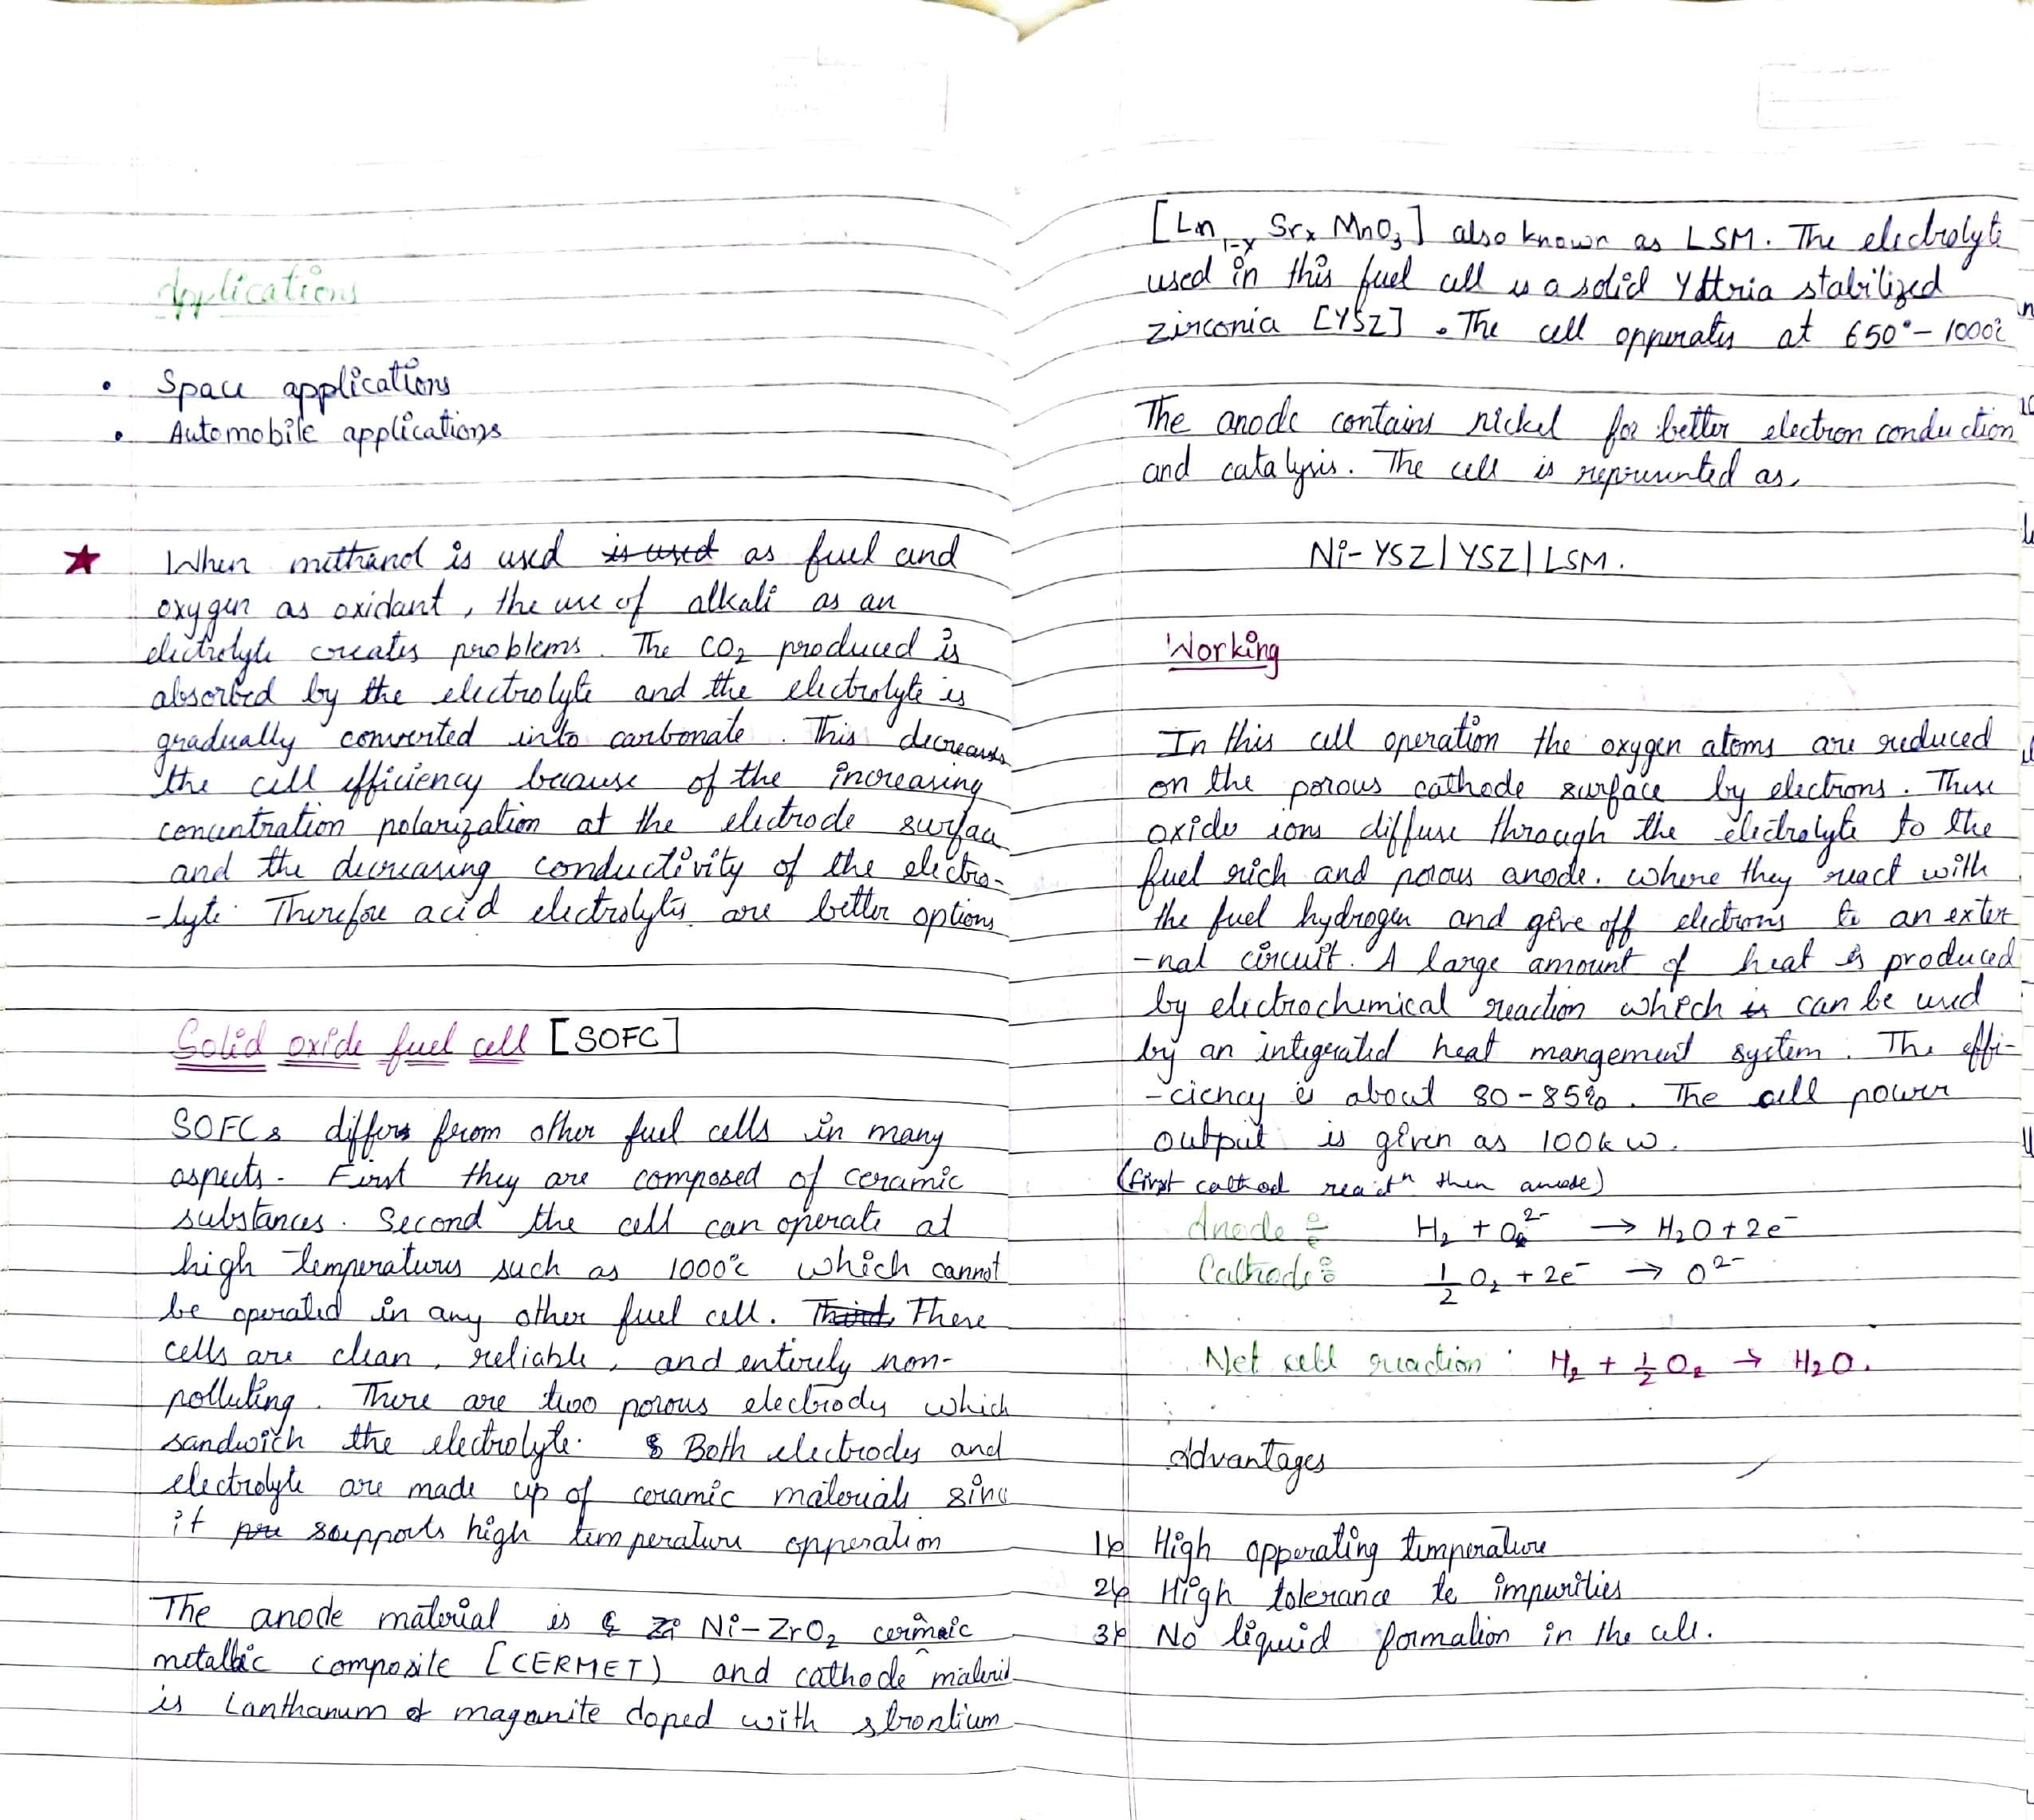 Applications
• Space applications
• Automobile applications
★ When methanol is used is used as fuel and
oxygen as oxidant, the use of alkali as an
electrolyte creates problems. The CO₂ produced is
absorbed by the electrolyte and the electrolyte is
gradually converted into carbonate. This decreases
the cell efficiency because of the increasing
concentration polarization at the electrode surface
and the decreasing conductivity of the electro-
-lyte. Therefore acid electrolytes are better options
Solid oxide fuel cell [SOFC]
SOFCs differs from other fuel cells in many
aspects. First they are composed of ceramic
substances. Second the cell can operate at
high temperatures such as 1000°c which cannot
be operated in any other fuel cell. Third, These
cells are clean, reliable, and entirely non-
polluting. There are two porous electrodes which
sandwich the electrolyte. Both electrodes and
electrolyte are made up of ceramic materials since
it supports high temperature opperation
The anode material is Ni-ZrO₂ cermaic
metallic composite [CERMET) and cathode material
is Lanthanum magnanite doped with strontium
[Ln₁₋ₓ Srₓ MnO₃] also known as LSM. The electrolyte
used in this fuel cell is a solid Yttria stabilized
zirconia [YSZ]. The cell opperates at 650°-1000°c
The anode contains nickel for better electron conduction
and catalysis. The cell is represented as,
Ni-YSZ|YSZ|LSM.
Working
In this cell operation the oxygen atoms are reduced
on the porous cathode surface by electrons. These
oxides ions diffuse through the electrolyte to the
fuel rich and porous anode. where they react with
the fuel hydrogen and give off electrons to an exter
-nal circuit. A large amount of heat is produced
by electrochemical reaction which is can be used
by an integrated heat mangement system. The effi-
-ciency is about 80-85%. The cell power
output is given as 100kw.
(first cathod reactⁿ then anode)
Anode : H₂ + O²⁻ → H₂O + 2e⁻
Cathode : 1/2 O₂ + 2e⁻ → O²⁻
Net cell reaction : H₂ + 1/2 O₂ → H₂O.
Advantages
1) High opperating temperature
2) High tolerance to impurities
3) No liquid formation in the cell.